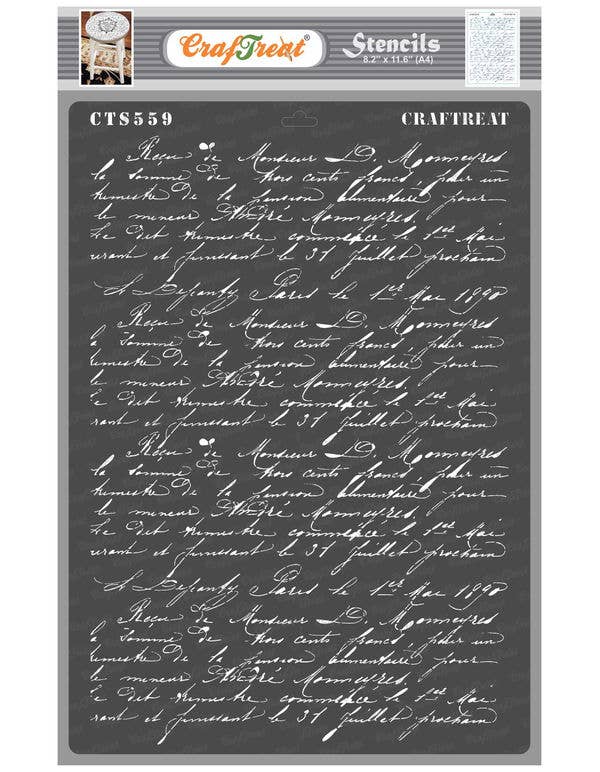 CrafTreat®
Stencils
8.2" x 11.6" (A4)
CTS559
CRAFTREAT
Reçu de Monsieur D. Monmeyres
la somme de trois cents francs, pour un
trimestre de la pension alimentaire pour
le mineur André Monmeyres.
Le dit trimestre commence le 1er Mai
urant et finissant le 31 juillet prochain
Paris le 1er Mai 1890
Reçu de Monsieur D. Monmeyres
la somme de trois cents francs, pour un
trimestre de la pension alimentaire pour
le mineur André Monmeyres.
Le dit trimestre commence le 1er Mai
rant et finissant le 31 juillet prochain
Reçu de Monsieur D. Monmeyres
la somme de trois cents francs, pour un
trimestre de la pension alimentaire pour
le mineur André Monmeyres.
Le dit trimestre commence le 1er Mai
urant et finissant le 31 juillet prochain
Paris le 1er Mai 1890
Reçu de Monsieur D. Monmeyres
a somme de trois cents francs, pour un
imestre de la pension alimentaire pour
le mineur André Monmeyres.
Le dit trimestre commence le 1er Mai
rant et finissant le 31 juillet prochain